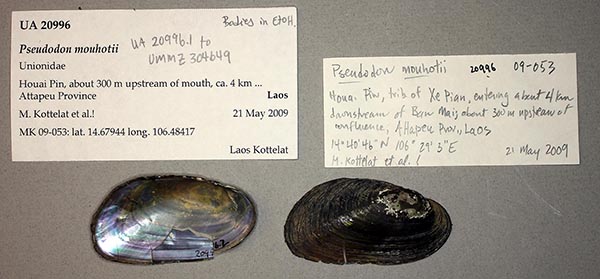 UA 20996
Bodies in EtOH.
UA 20996.1 to
UMMZ 304649
Pseudodon mouhotii
Unionidae
Houai Pin, about 300 m upstream of mouth, ca. 4 km ... Laos
Attapeu Province
M. Kottelat et al.! 21 May 2009
MK 09-053: lat. 14.67944 long. 106.48417
Laos Kottelat
Pseudodon mouhotii 20996 09-053
Houai Pin, trib of Xe Pian, entering about 4 km
downstream of Ban Mai; about 300 m upstream of
confluence, Attapeu Prov., Laos
14°40'46" N 106° 29' 3" E
21 May 2009
M. Kottelat et al. !